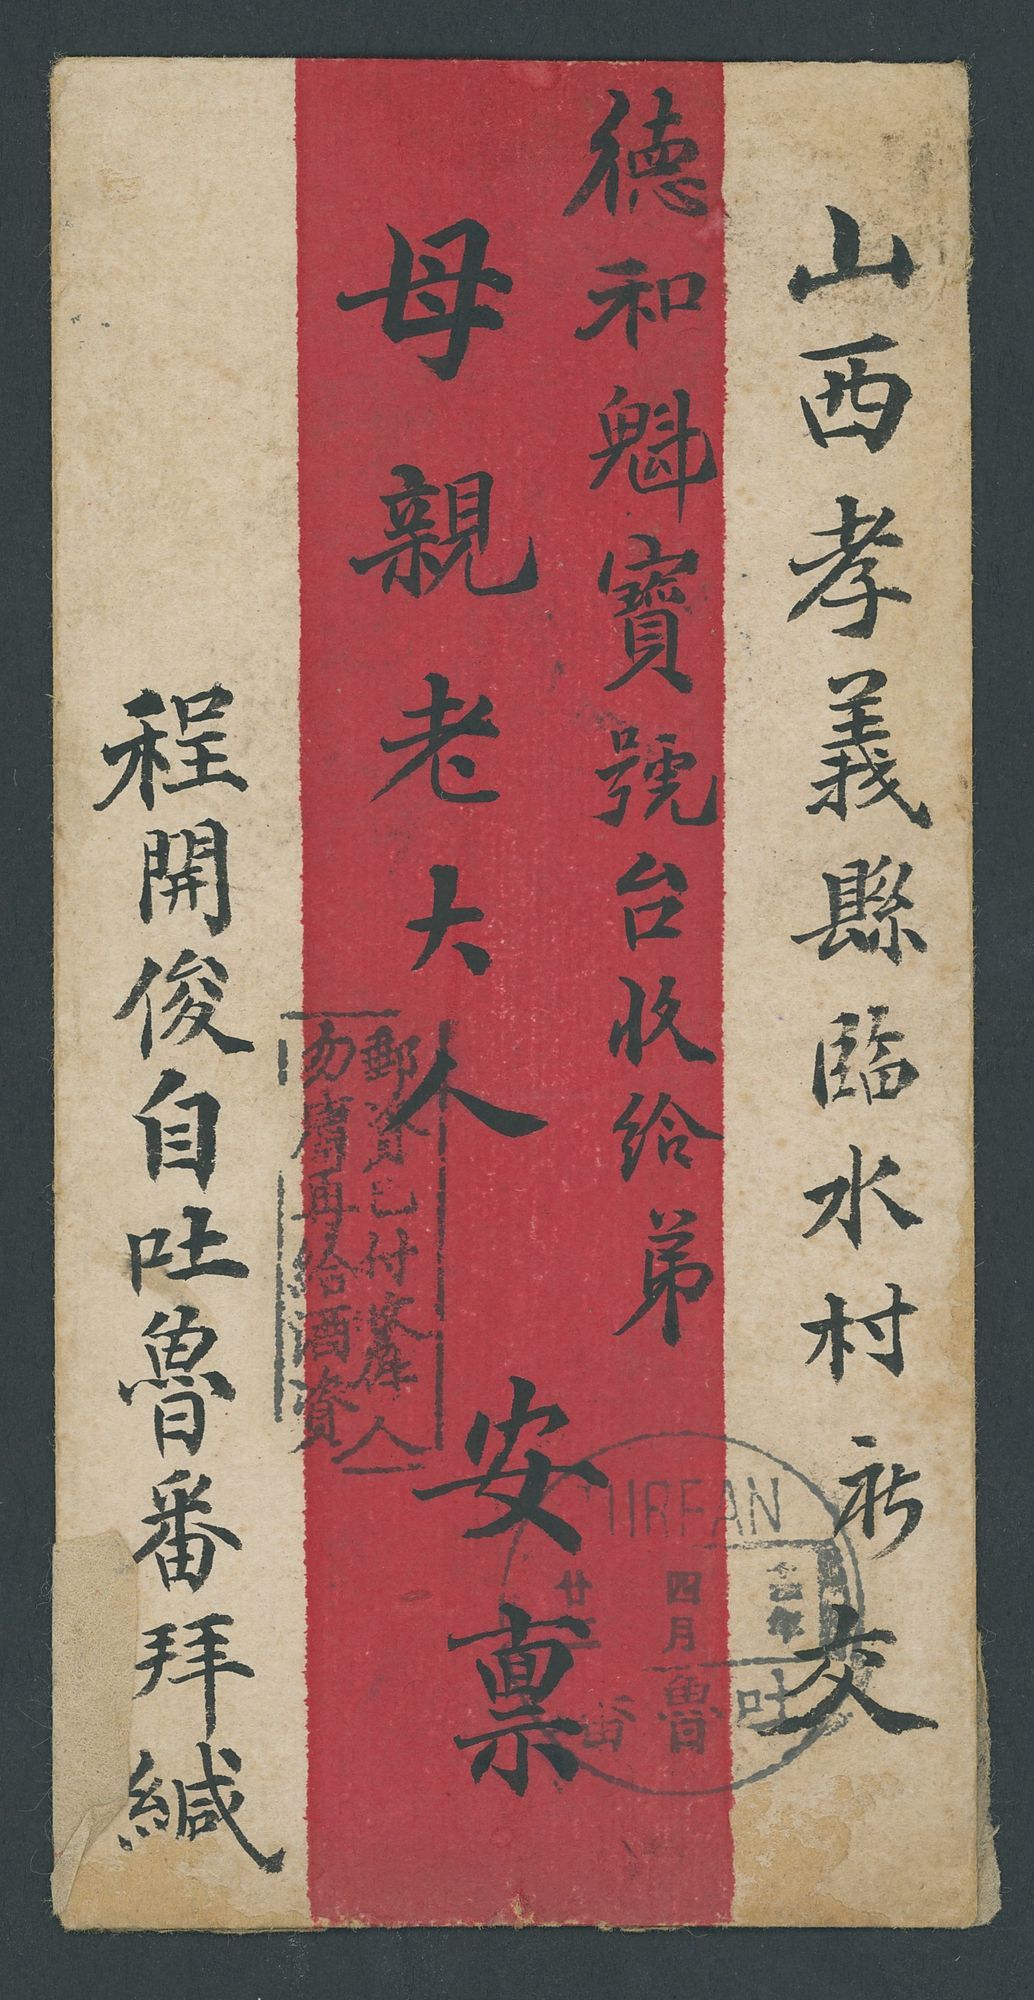 山西孝義縣臨水村祈交
德和魁寶號台收給弟
母親老大人 安稟
程開俊自吐魯番拜緘
郵資已付收件人
勿庸再給酒資
TURFAN
四月
廿
吐魯番